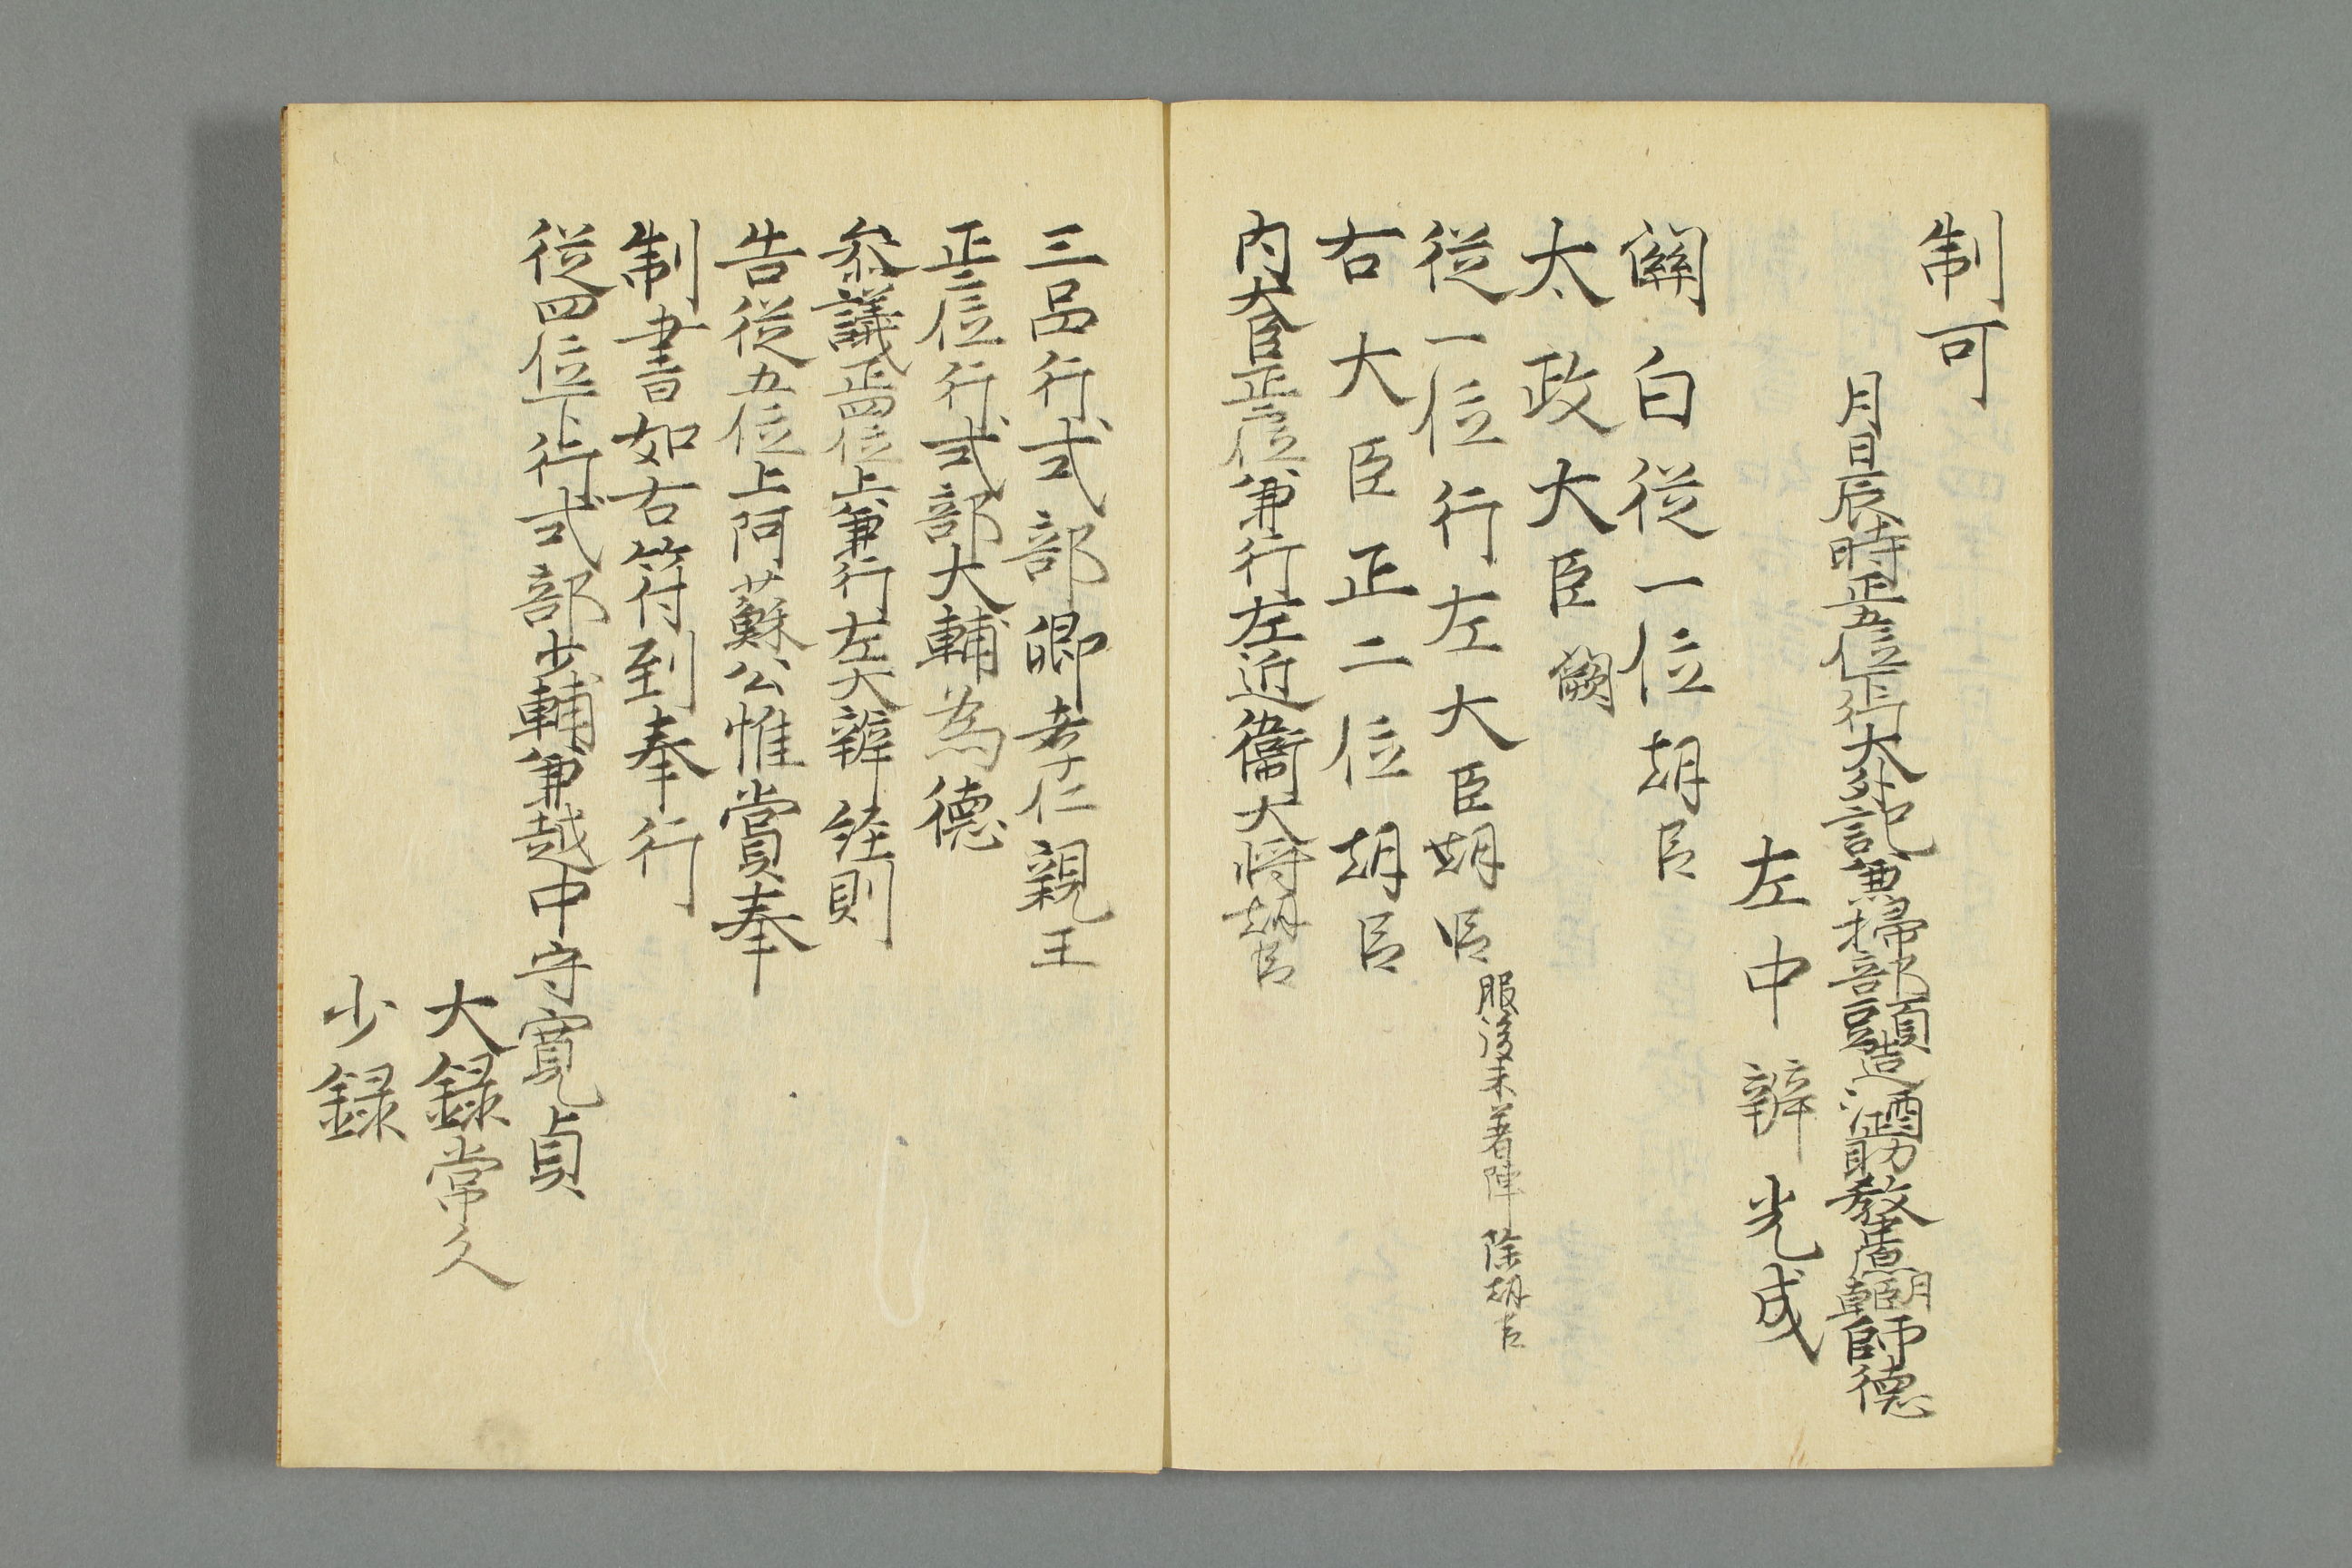 制可
月日辰時正五位下行大外記兼掃部頭造酒正助教清原朝臣師德
左中辨光成
關白從一位朝臣
太政大臣闕
從一位行左大臣朝臣服後未著陣除朝臣
右大臣正二位朝臣
内大臣正二位兼行左近衞大将朝臣
三品行式部卿孝仁親王
正三位行式部大輔為德
参議正四位上兼行左大辨経則
告從五位上阿蘇公惟賞奉
制書如右符到奉行
從四位下行式部少輔兼越中守寛貞
大録常久
少録